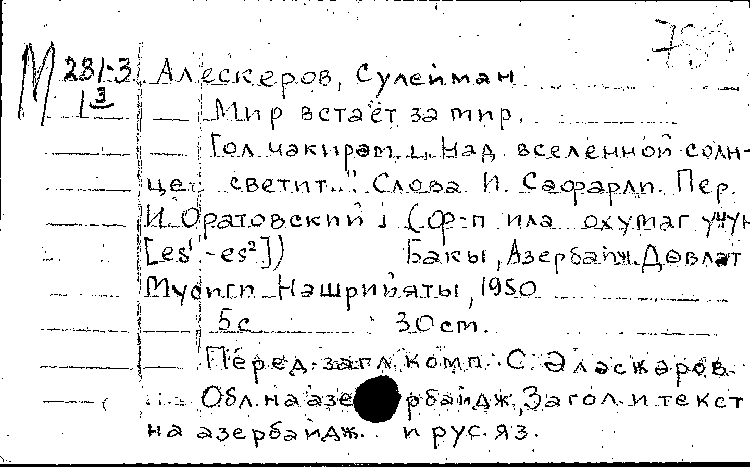 М 281-3 Алескеров, Сулейман
1 3
Мир встаёт за мир.
[Гол чакирәм „Над вселенной солн-
це светит..." Слова И. Сафарли. Пер.
И. Оратовский] (ф-п илә охумаг үчүн
[es¹-es²]) Бакы, Азербайҹ. Дөвләт
Мусиги Нәшрийяты, 1950
5с 30 cm.
Перед загл. комп. С. Әләскәров.
Обл. на азербайдж, Загол. и текст
на азербайдж. и рус. яз.